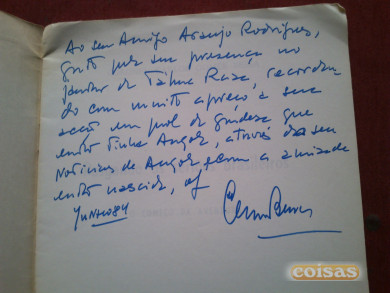 Ao seu Amigo Araujo Rodrigues,
grato pela sua presença no
jantar de Tábua Rasa, recordan
do com muito apreço a sua
acção em prol da grandeza que
então tinha Angola, através do seu
Notícias de Angola, e com a amizade
então nascida, of
Junho 84
coisas